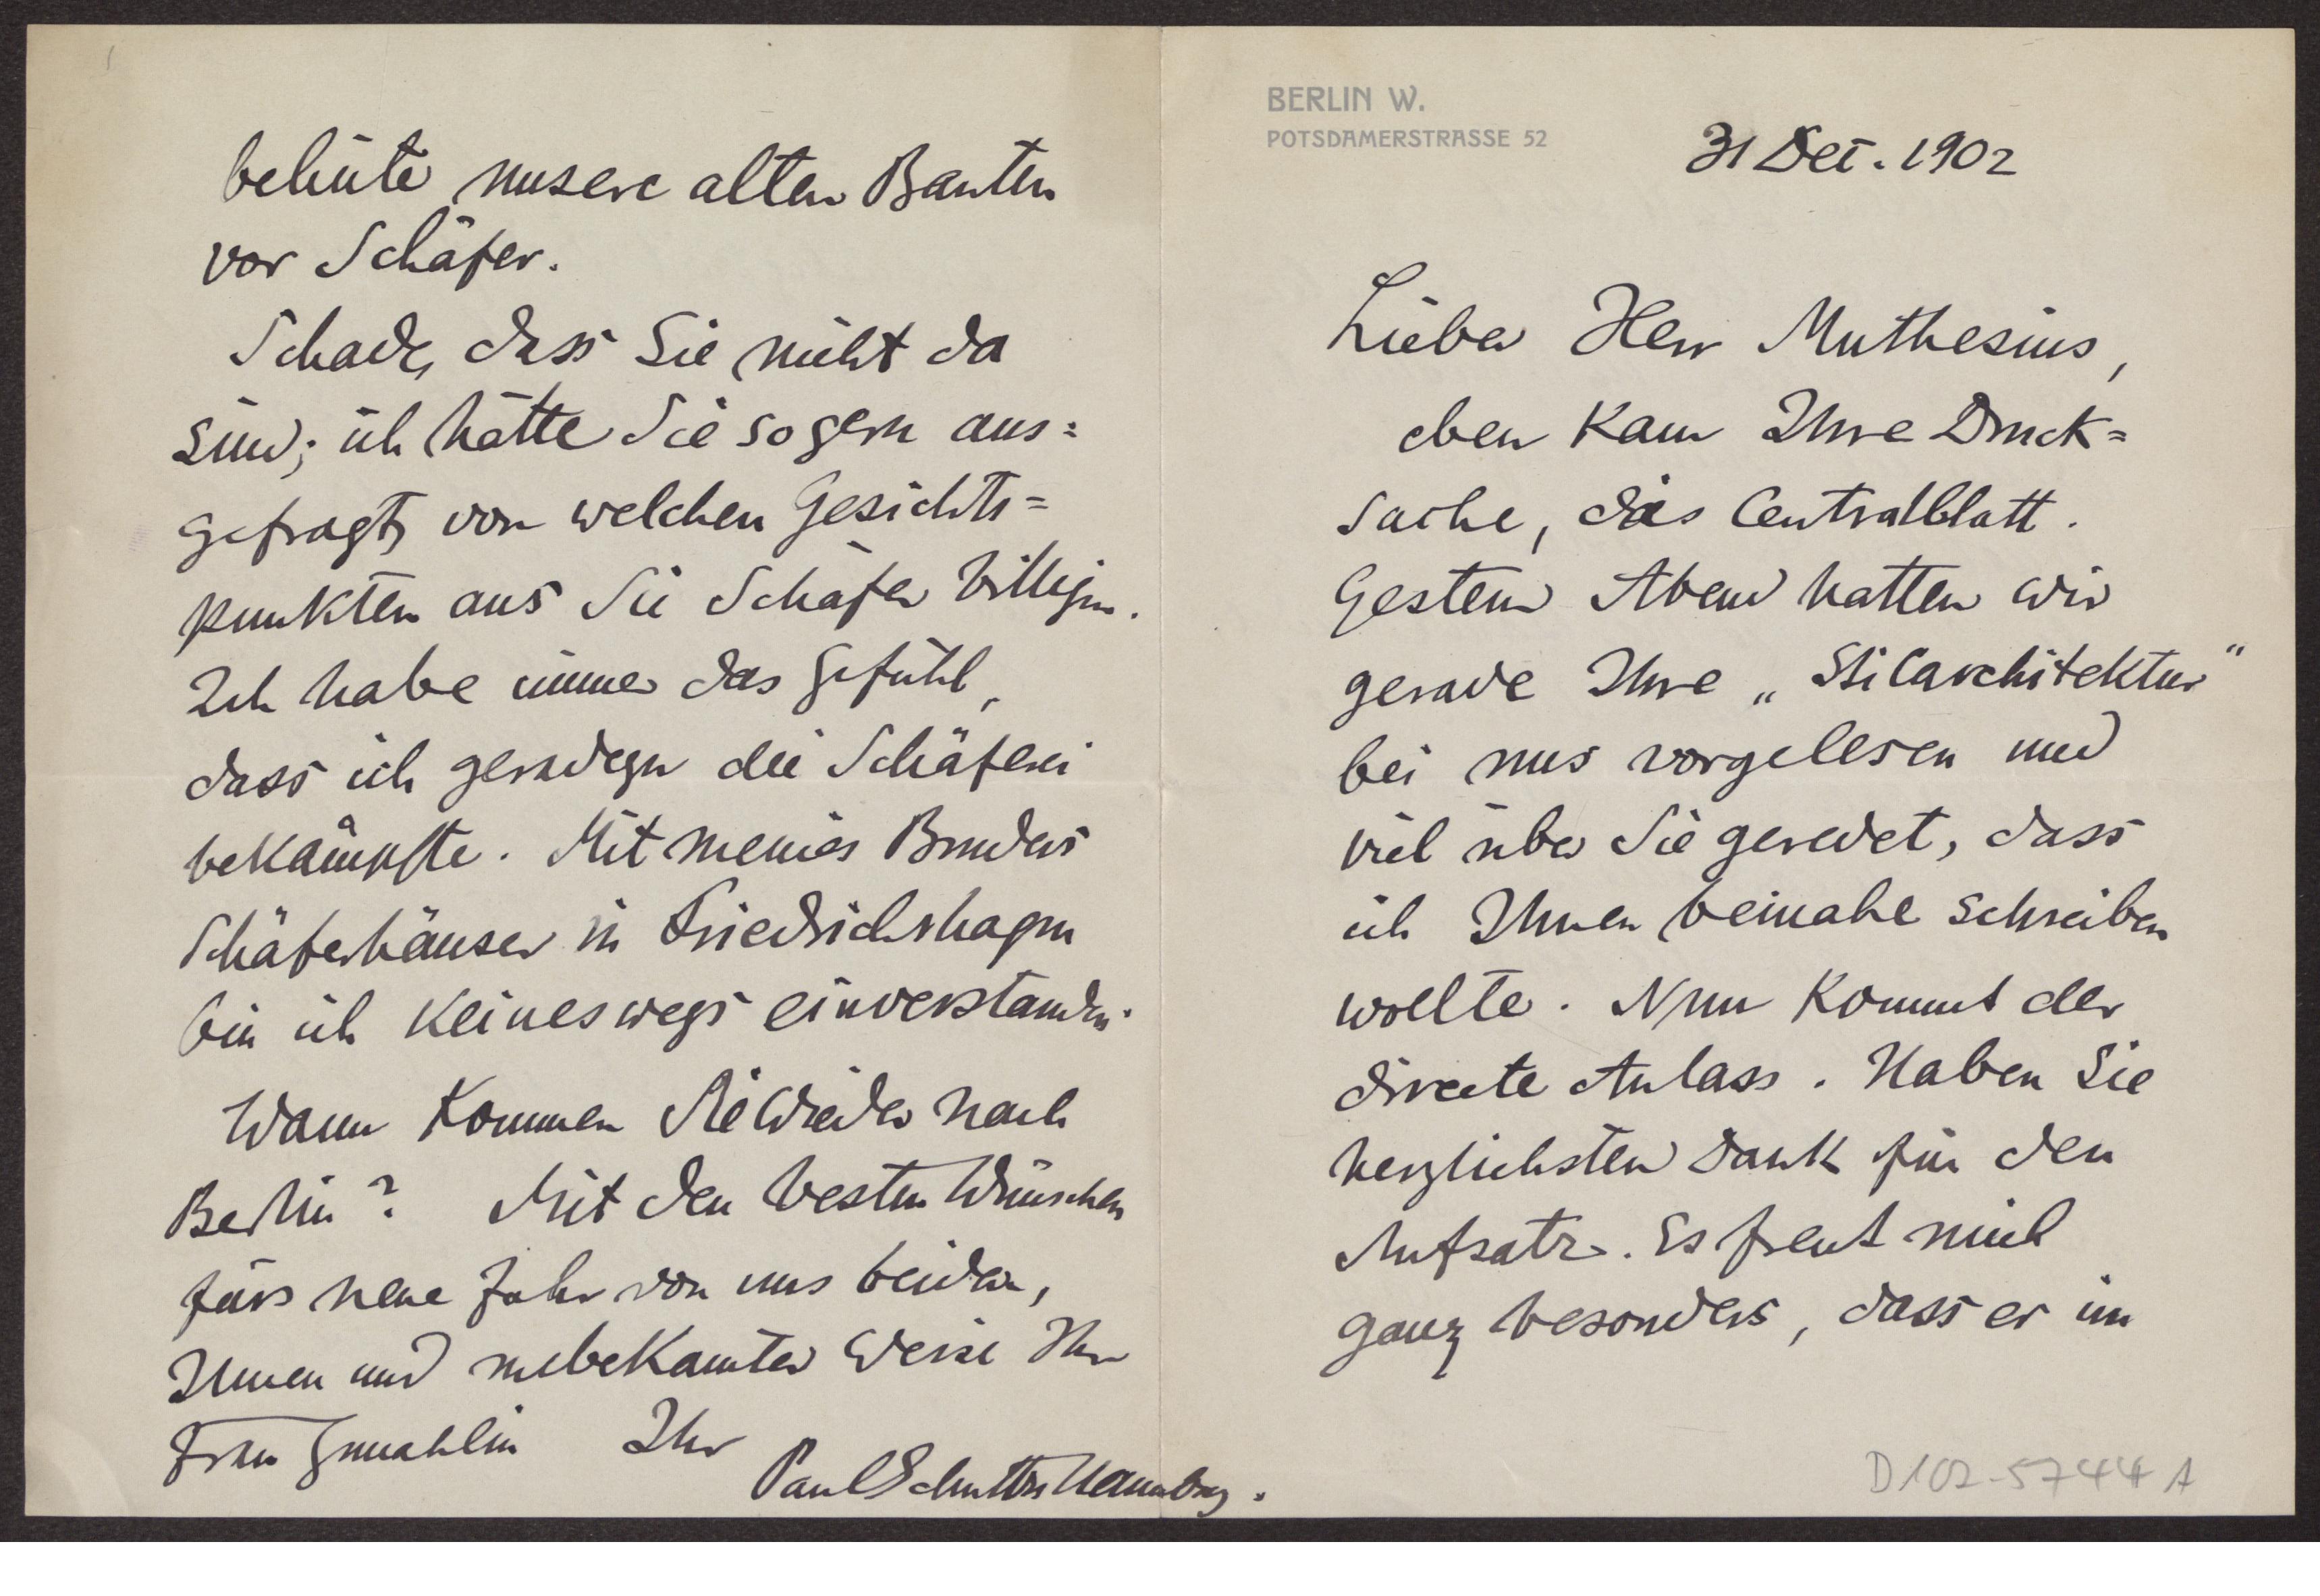 BERLIN W.
POTSDAMERSTRASSE 52
31 Dez. 1902
Lieber Herr Muthesius,
eben kam Ihre Druck=
sache, das Centralblatt.
Gestern Abend hatten wir
gerade Ihre „Stilarchitektur"
bei uns vorgelesen und
viel über Sie geredet, dass
ich Ihnen beinahe schreiben
wollte. Nun kommt der
directe Anlass. Haben Sie
herzlichsten Dank für den
Aufsatz. Es freut mich
ganz besonders, dass er im
D102-5744 A
behüte unsere alten Bauten
vor Schäfer.
Schade, dass Sie nicht da
sind; ich hätte Sie so gern aus=
gefragt, von welchen Gesichts=
punkten aus Sie Schäfer billigen.
Ich habe immer das Gefühl,
dass ich geradezu die Schäferei
bekämpfte. Mit meines Bruders
Schäferhäuser in Friedrichshagen
bin ich keineswegs einverstanden.
Wann kommen Sie wieder nach
Berlin? Mit den besten Wünschen
fürs neue Jahr von uns beiden,
Ihnen und unbekannter Weise Ihrer
Frau Gemahlin Ihr
Paul Schultze Naumburg.